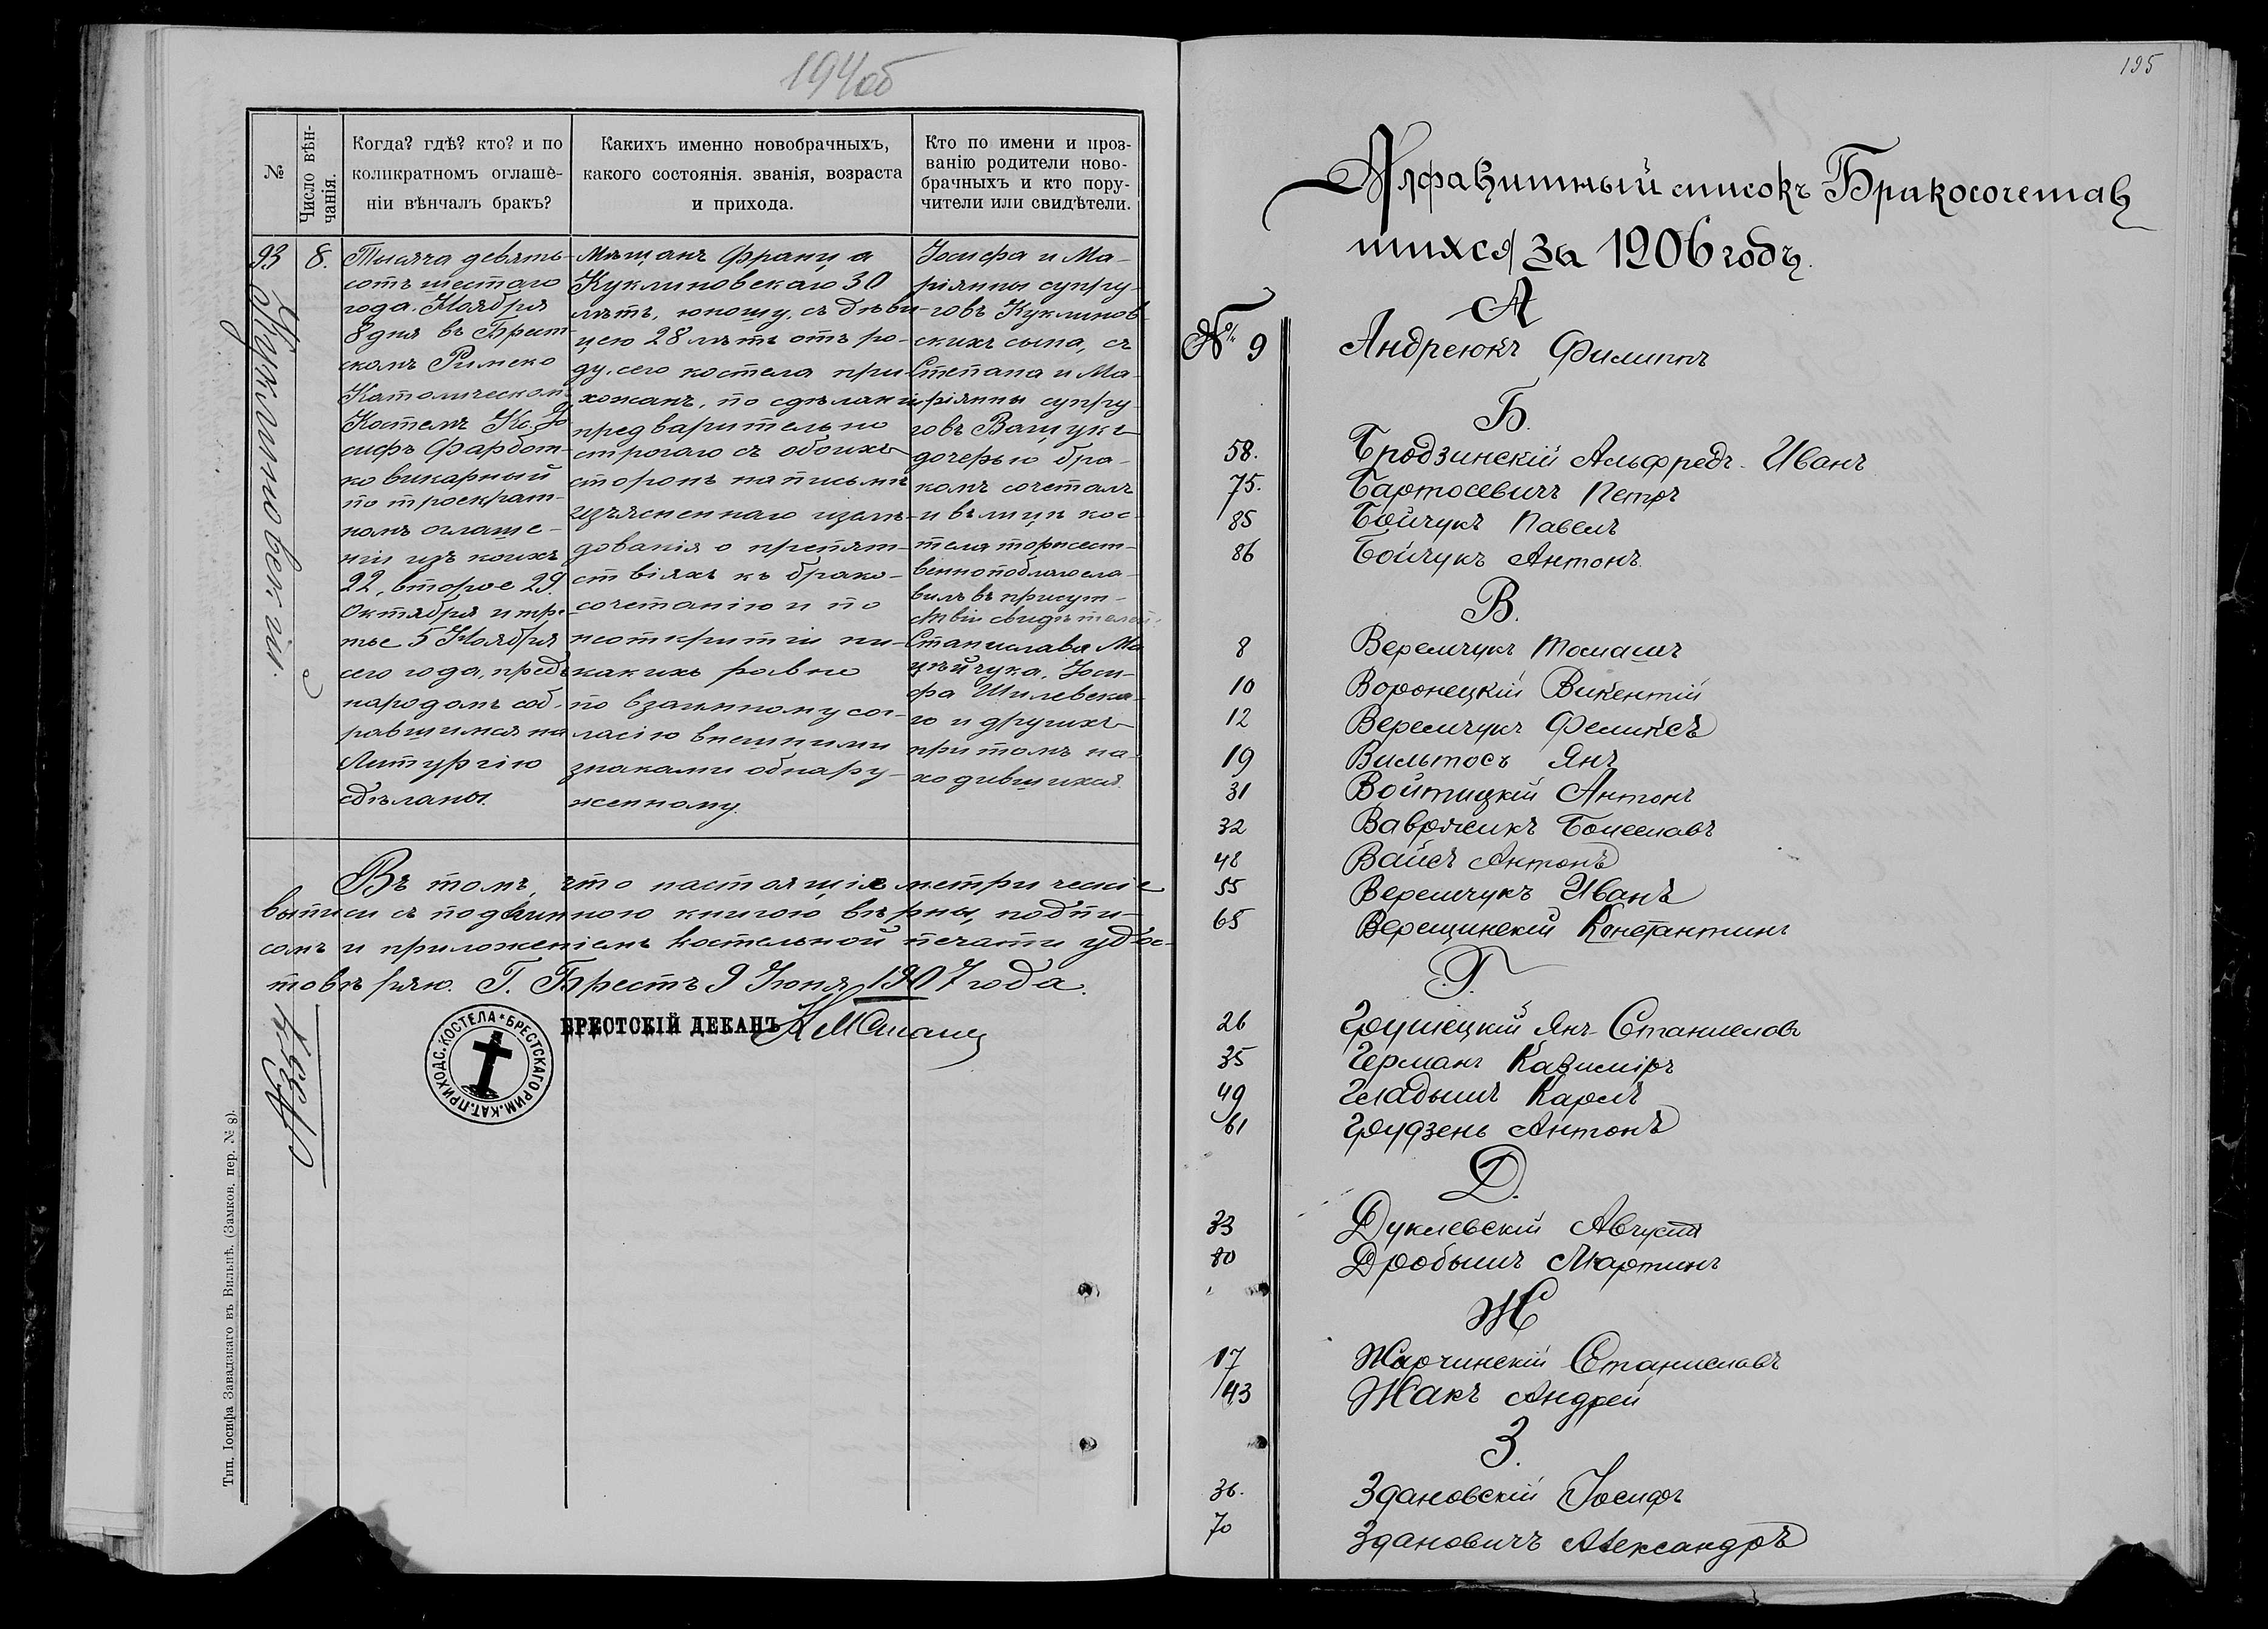 194об
№
Число вѣн-
чанія.
Когда? гдѣ? кто? и по
коликратномъ оглаше-
ніи вѣнчалъ бракъ?
Какихъ именно новобрачныхъ,
какого состоянія. званія, возраста
и прихода.
Кто по имени и проз-
ванію родители ново-
брачныхъ и кто пору-
чители или свидѣтели.
93
8.
Куклиновскій.
Тысяча девять-
сотъ шестаго
года. Ноября
8 дня въ Брест-
скомъ Римско
Католическомъ
Костелѣ Кс. Іо
сифъ Фарбот-
ко викарный
по троекрат-
номъ оглаше-
ніи изъ коихъ
22, второе 29.
Октября и тре-
тье 5 Ноября
сего года, предъ
народомъ соб-
равшимся на
Литургію
сдѣланы.
Мѣщанъ Франца
Куклиновскаго 30
лѣтъ, юношу, съ дѣви-
цею 28 лѣтъ отъ ро-
ду, сего костела при-
хожанъ, по сдѣланіи
предварительно
строгаго съ обоихъ
сторонъ на письмѣ
изъясненнаго изслѣ-
дованія о препят-
ствіяхъ къ брако-
сочетанію и по
неоткритіи ни-
какихъ равно
по взаимному сог-
ласію внешними
знаками обнару-
женному.
Іосифа и Ма-
ріянны супру-
говъ Куклинов-
скихъ сына, съ
Степана и Ма-
ріянны супру-
говъ Ващукъ
дочерью бра-
комъ сочеталъ
и въ лицѣ кос-
тела торжест-
венно поблагосла-
вилъ въ присут-
ствіи свидѣтелей:
Станислава Ма
цѣйчука, Іоси-
фа Шилевска-
го и другихъ
при томъ на-
ходившихся.
Въ томъ, что настоящія метрическіе
выписи съ подлинною книгою вѣрны, подпи-
сомъ и приложеніемъ костельной печати удос-
товѣряю. Г. Брестъ 9 Іюня 1907 года.
БРЕСТСКІЙ ДЕКАНЪ
БРЕСТСКАГО РИМ.КАТ.ПРИХОДС.КОСТЕЛА
Тип. Іосифа Завадзкаго въ Вильнѣ. (Замков. пер. № 8).
195
Алфавитный списокъ Бракосочетав
шихся за 1906 годъ.
А
№ 9 Андреюкъ Филиппъ
Б.
58. Бродзинскій Альфредъ-Иванъ
75. Бартосевичъ Петръ
85 Бойчукъ Павелъ
86 Бойчукъ Антонъ.
В.
8 Веремчукъ Томашъ
10 Воронецкій Викентій
12 Веремчукъ Феликсъ
19 Вильтосъ Янъ
31 Войтицкій Антонъ
32 Вавржикъ Болеславъ
48 Вайсъ Антонъ
55 Веремчукъ Иванъ
65 Верещинскій Константинъ
Г.
26 Грушецкій Янъ-Станиславъ
35 Германъ Казиміръ
49 Гладышъ Карлъ
61 Грудзень Антонъ
Д.
33 Дуклевскій Августъ
80 Дробышъ Мартинъ
Ж
17 Жарчинскій Станиславъ
43 Жакъ Андрей
З.
36. Здановскій Іосифъ
70 Здановичъ Александръ